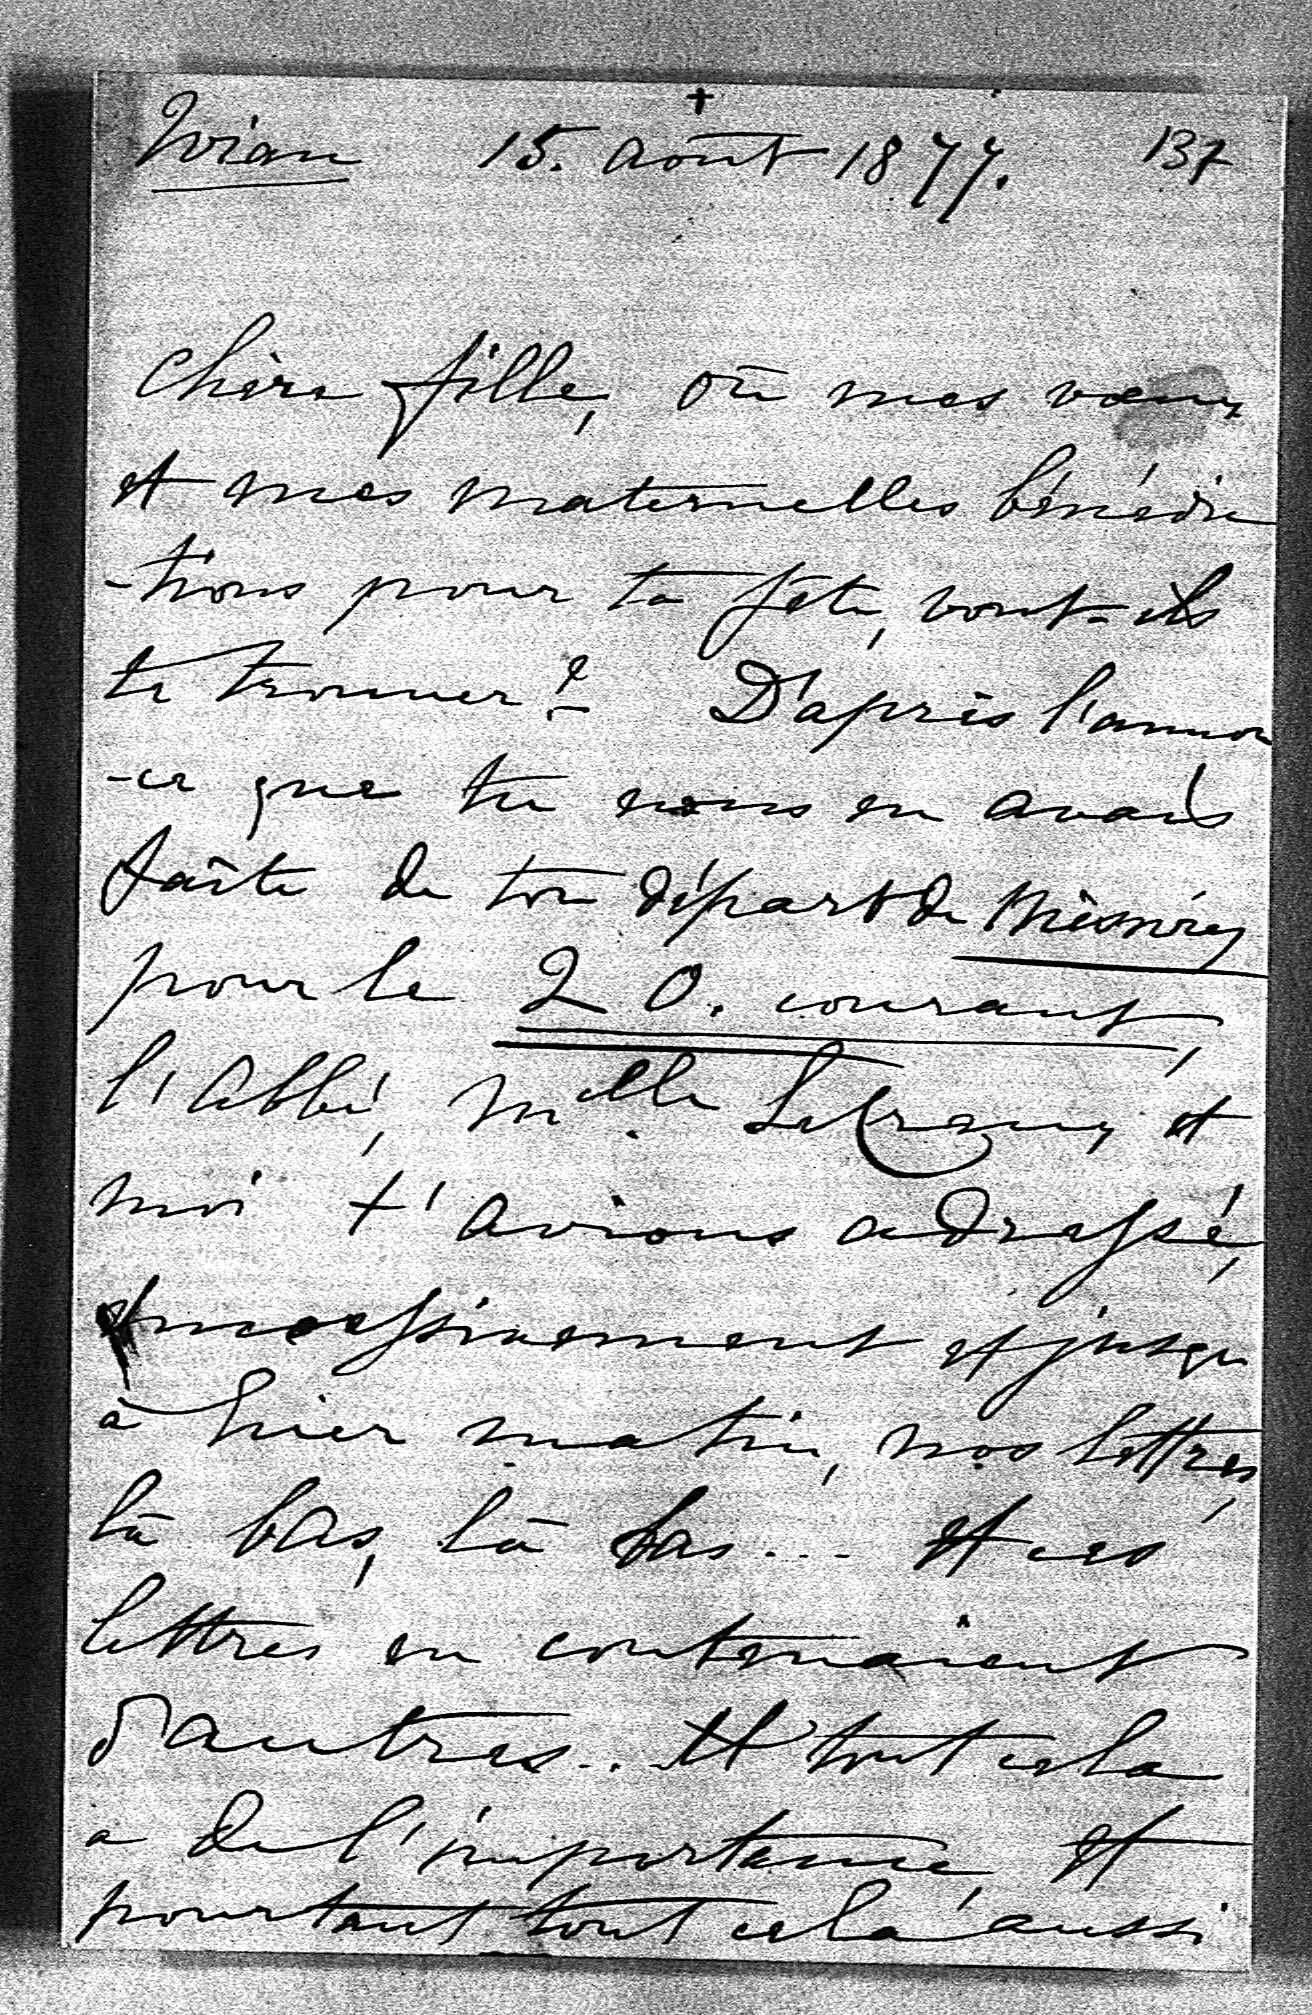 ✝
15. août 1877. 137
Chère fille, où mes vœux
et mes maternelles bénédic
-tions pour ta fête, vont-ils
te trouver? D'après l'annon
-ce que tu nous en avais
faîte de ton départ de
pour le 20. courant,
l'abbé, Mlle. et
moi t'avions adressé,
successivement et jusqu
à hier matin, nos lettres,
là bas, là bas... Et ces
lettres en contenaient
d'autres... Et tout cela
a de l'importance, et
pourtant tout cela aussi